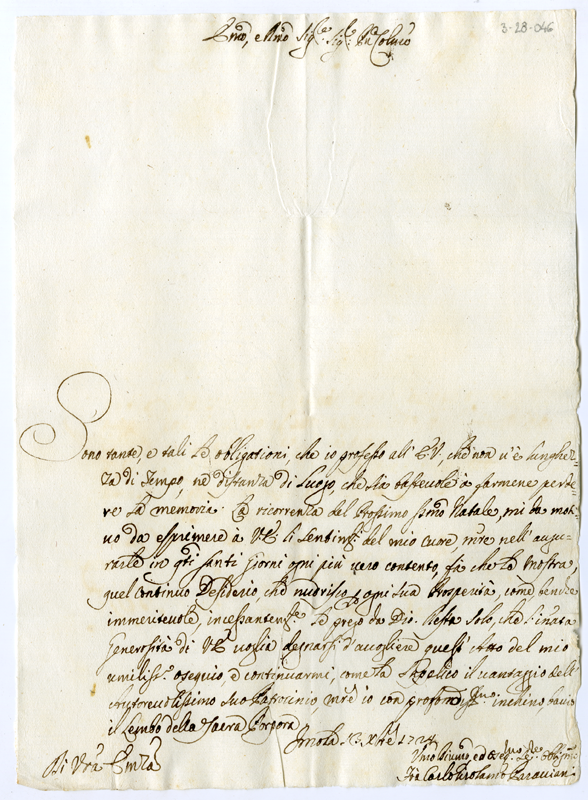 3-28-046
Emo, e Rmo Sig.re Sig.re Pn Colmo
Sono tante, e tali le obligationi, che io professo all' E.V., che non v'è lunghez=
za di tempo, nè distanza di luogo, che sia bastevole à farmene perde=
re la memoria. La ricorrenza del prossimo SSmo Natale, mi da moti=
vo da esprimere à V.E. li sentimti del mio cuore, mre nell' augu=
rarle in qti santi giorni ogni più vero contento, fà che le mostra
quel continuo desiderio, che nudrisco ogni sua prosperità, come benche
immeritevole, incessantemte le prego da Dio. Resta solo, che l'innata
generosità di V.E. voglia degnarsi d'accogliere quest' atto del mio
umiliss.o ossequio, e continuarmi, come la supplico il vantaggio dell'
autorevolissimo suo Patrocinio mre io con profondissmo inchino bacio
il lembo della sacra Porpora
Imola 13 Xbre 1724
Di Vra Emza
Umo Divmo, ed Obmo
Fra Carlo Girolamo